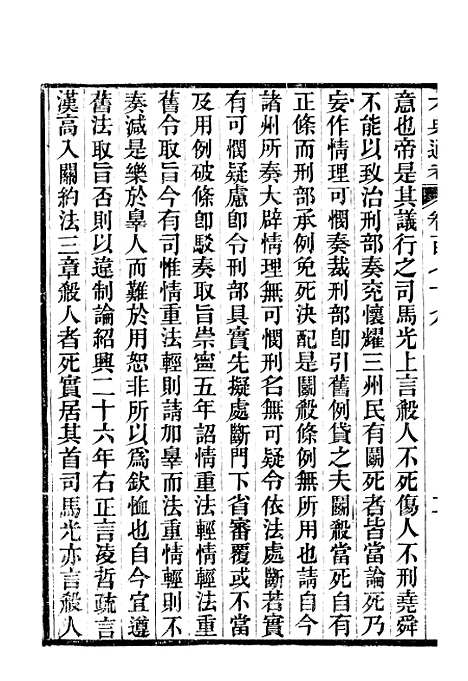 意也帝是其議行之司馬光上言殺人不死傷人不刑堯舜
不能以致治刑部奏兖懷耀三州民有鬬死者皆當論死乃
妄作情理可憫奏裁刑部卽引舊例貸之夫鬬殺當死自有
正條而刑部承例免死決配是鬬殺條例無所用也請自今
諸州所奏大辟情理無可憫刑名無可疑令依法處斷若實
有可憫疑慮卽令刑部具實先擬處斷門下省審覆或不當
及用例破條卽駁奏取旨崇寧五年詔情重法輕情輕法重
舊令取旨今有司惟情重法輕則請加辠而法重情輕則不
奏減是樂於辠人而難於用恕非所以爲欽恤也自今宜遵
舊法取旨否則以違制論紹興二十六年右正言凌哲疏言
漢高入關約法三章殺人者死實居其首司馬光亦言殺人